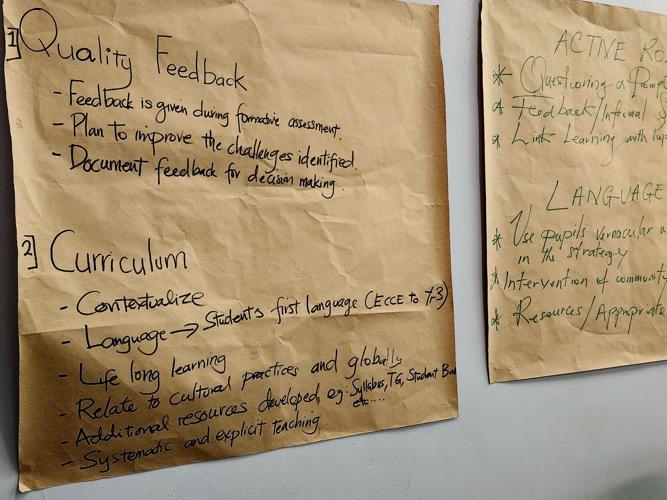 1] Quality Feedback
- Feedback is given during formative assessment.
- Plan to improve the challenges identified.
- Document feedback for decision making.
2] Curriculum
- Contextualize
- Language → Student's first language (ECCE to Yr3)
- Life long learning
- Relate to cultural practices and globally
- Additional resources developed, eg: Syllabus, TG, Student
etc....
- Systematic and explicit teaching
ACTIVE
* Questioning a
* Feedback/Informal
* Link Learning with
LANGUAGE
* Use pupils vernacular
in the strategy
* Intervention of community
* Resources/Appropriate